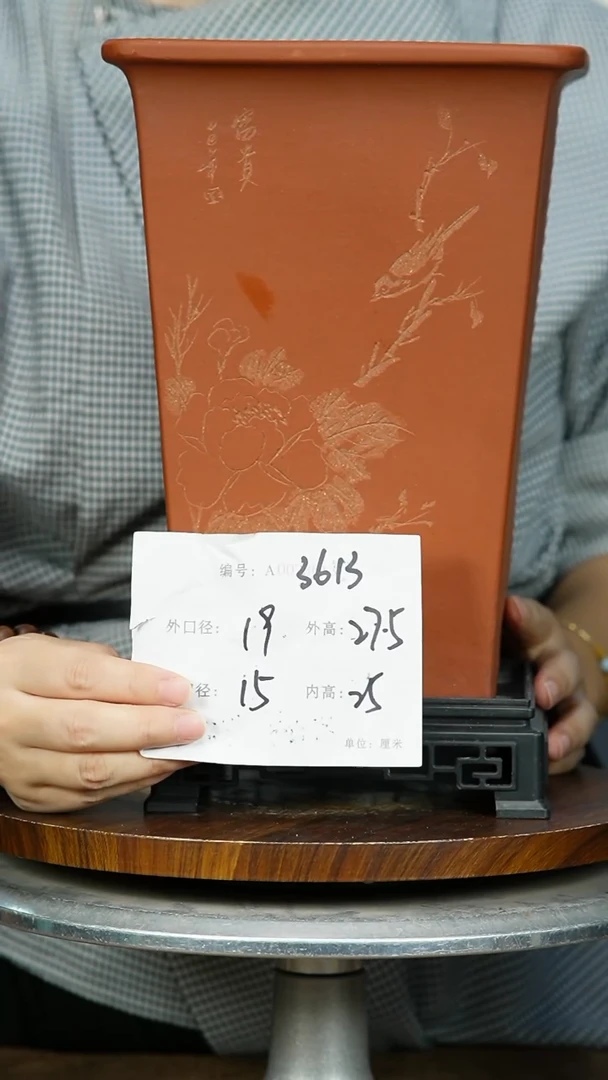 富貴
编号: A00 3613
外口径: 19 外高: 27.5
径: 15 内高: 25
单位: 厘米